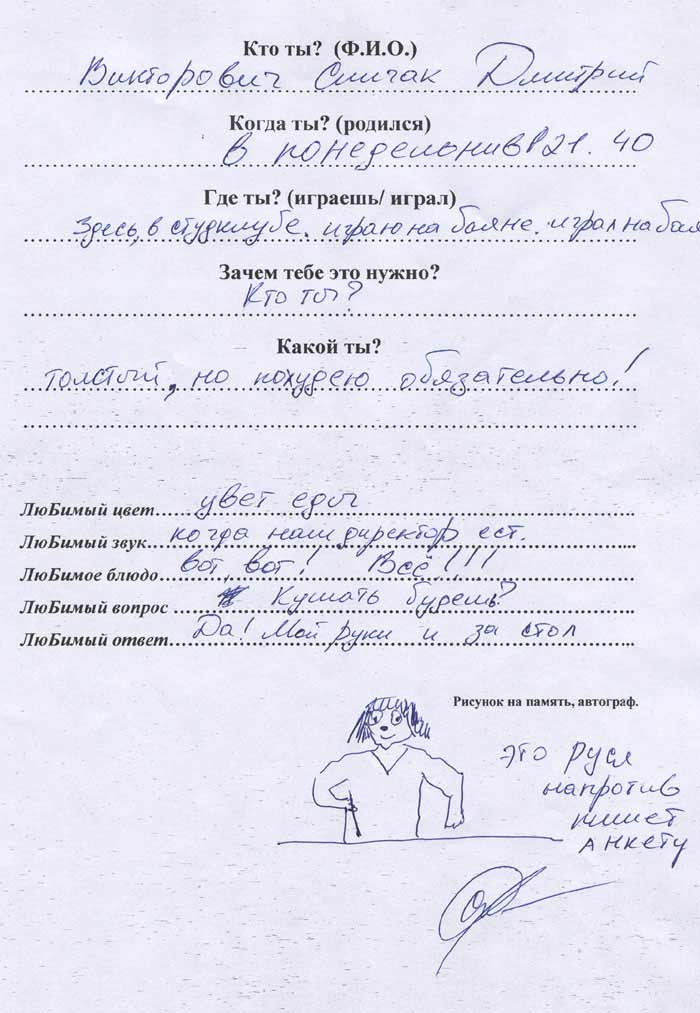 Кто ты? (Ф.И.О.)
Викторович Спичак Дмитрий
Когда ты? (родился)
в понедельник в 21.40
Где ты? (играешь/ играл)
Здесь, в студклубе. играю на баяне. играл на бая
Зачем тебе это нужно?
Кто ты?
Какой ты?
толстый, но похудею обязательно!
ЛюБимый цвет цвет еды
ЛюБимый звук когда наш директор ест.
ЛюБимое блюдо вот, вот! Всё!!!
ЛюБимый вопрос Кушать будешь?
ЛюБимый ответ Да! Мой руки и за стол
Рисунок на память, автограф.
это Руся
напротив
пишет
анкету